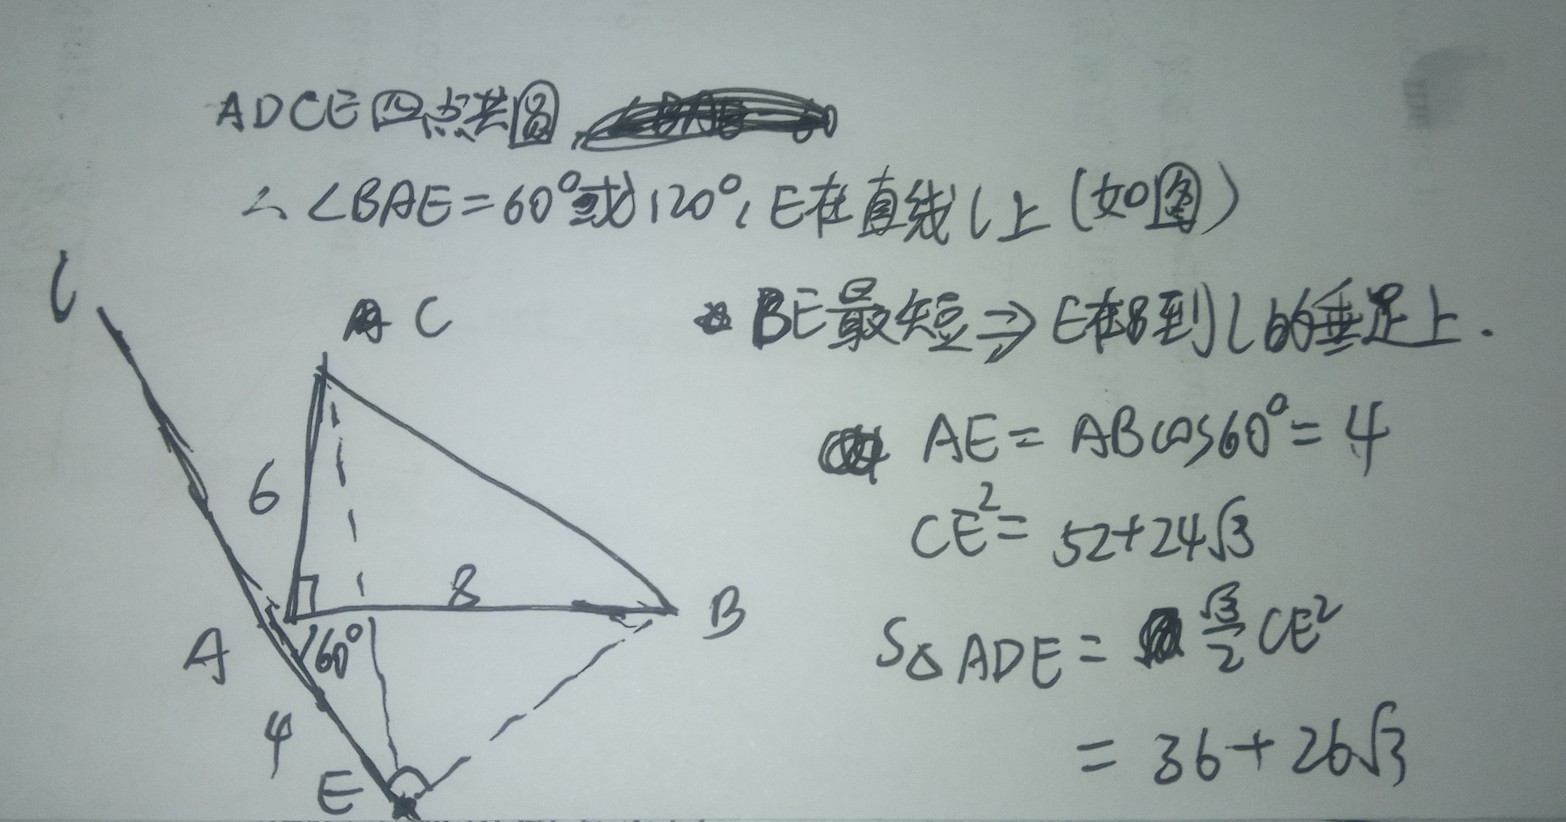 ADCE四点共圆
∴ ∠BAE=60°或120°, E在直线l上(如图)
l
C
BE最短⇒E在B到l的垂足上.
6
AE=ABcos60°=4
CE²=52+24√3
8
B
A
60°
S△ADE=√3/2 CE²
4
=36+26√3
E